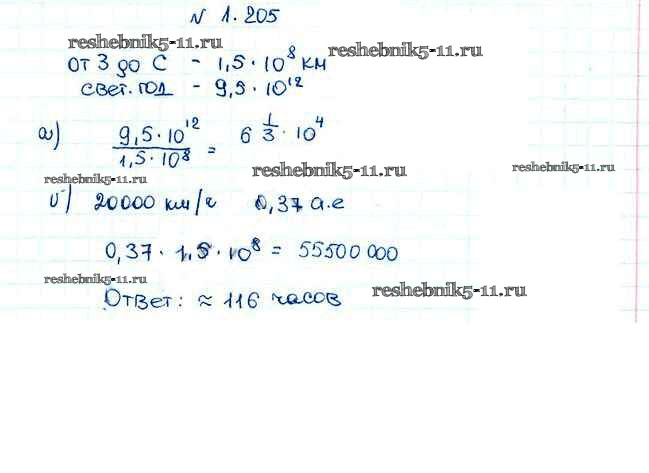 № 1.205
reshebnik5-11.ru
reshebnik5-11.ru
от З до С - 1,5 · 10^8 км
свет. год - 9,5 · 10^12
а) 9,5 · 10^12 / 1,5 · 10^8 = 6 1/3 · 10^4
reshebnik5-11.ru
reshebnik5-11.ru
reshebnik5-11.ru
б) 20000 км/ч 0,37 а.е
0,37 · 1,5 · 10^8 = 55500 000
reshebnik5-11.ru
reshebnik5-11.ru
Ответ: ≈ 116 часов